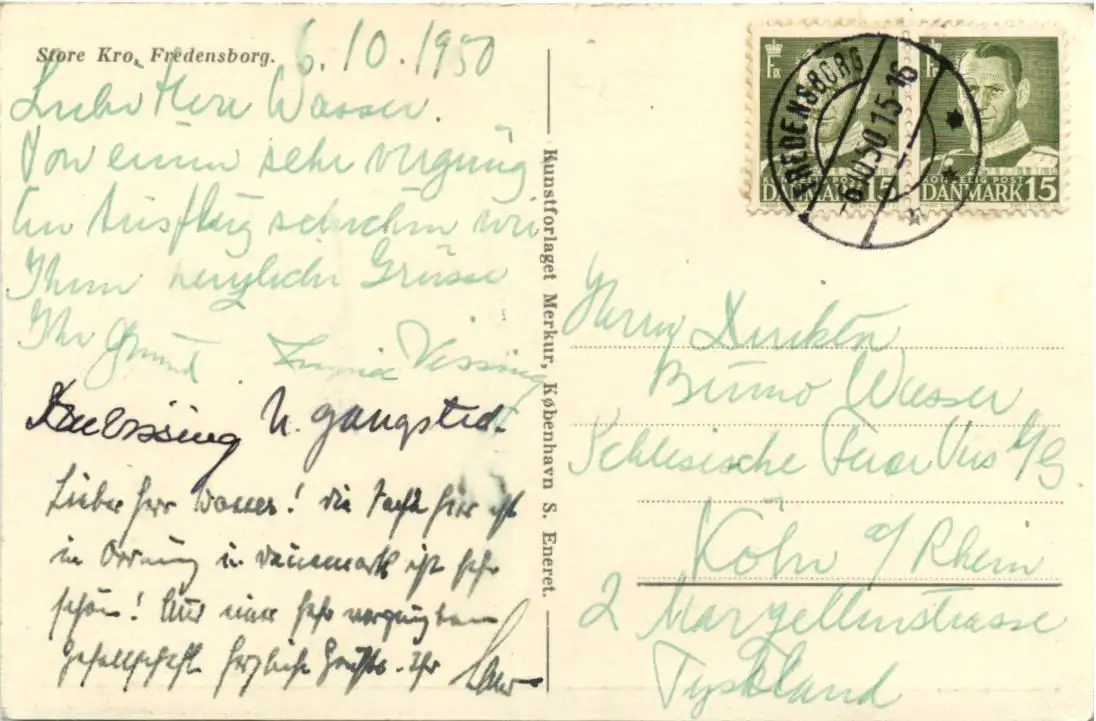 Store Kro, Fredensborg.
6.10.1950
Lieber Herr Wasser.
Von einem sehr vergnüg
ten Ausflug schicken wir
Ihnen herzliche Grüsse
Ihr Vissing
N. Gangsted.
Lieber Herr Wasser! Die Sache hier ist
in Ordnung in Dänemark ist sehr
schön! Aus einer sehr vergnügten
Gesellschaft herzliche Grüße. Ihr
Kunstforlaget Merkur, København S. Eneret.
FREDENSBORG
-6.10.50 15-16
KONGELIG POST
DANMARK 15
KONGELIG POST
DANMARK 15
Herrn Direktor
Bruno Wasser
Schlesische Feuer Vers A/G
Köln a/Rhein
2 Marzellenstrasse
Tyskland